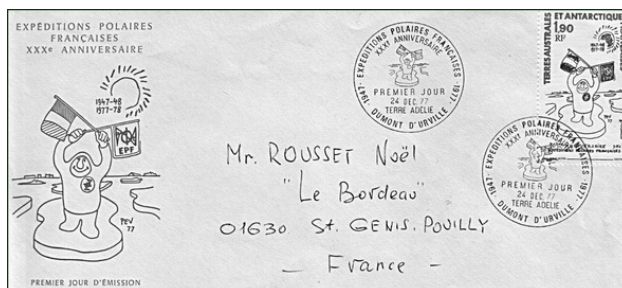 EXPÉDITIONS POLAIRES
FRANÇAISES
XXXe ANNIVERSAIRE
1947-48
1977-78
EPF
PEV
77
PREMIER JOUR D'ÉMISSION
1947 · EXPÉDITIONS POLAIRES FRANÇAISES · 1977
XXXe ANNIVERSAIRE
PREMIER JOUR
24 DEC. 77
TERRE ADELIE
DUMONT D'URVILLE
TERRES AUSTRALES ET ANTARCTIQUES
1,90
RF
1947-48
1977-78
1947 · EXPÉDITIONS POLAIRES FRANÇAISES · 1977
XXXe ANNIVERSAIRE
PREMIER JOUR
24 DEC. 77
TERRE ADELIE
DUMONT D'URVILLE
Mr. ROUSSET Noël
"Le Bordeau"
01630 St. GENIS. POUILLY
- France -